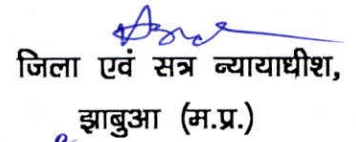 जिला एवं सत्र न्यायाधीश,
झाबुआ (म.प्र.)